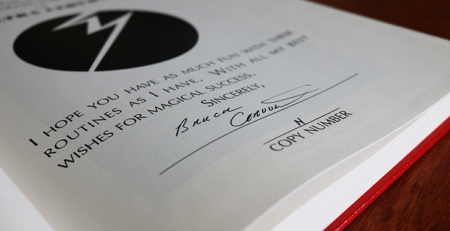 I HOPE YOU HAVE AS MUCH FUN WITH THESE
ROUTINES AS I HAVE. WITH ALL MY BEST
WISHES FOR MAGICAL SUCCESS.
SINCERELY,
COPY NUMBER